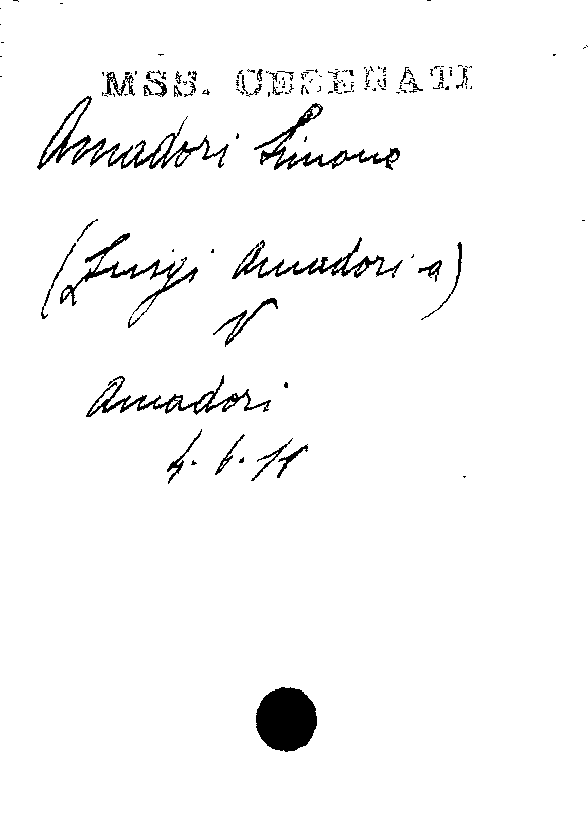 MSS. CESENATI
Amadori Simone
(Luigi Amadori a)
V
Amadori
4. 6. 11